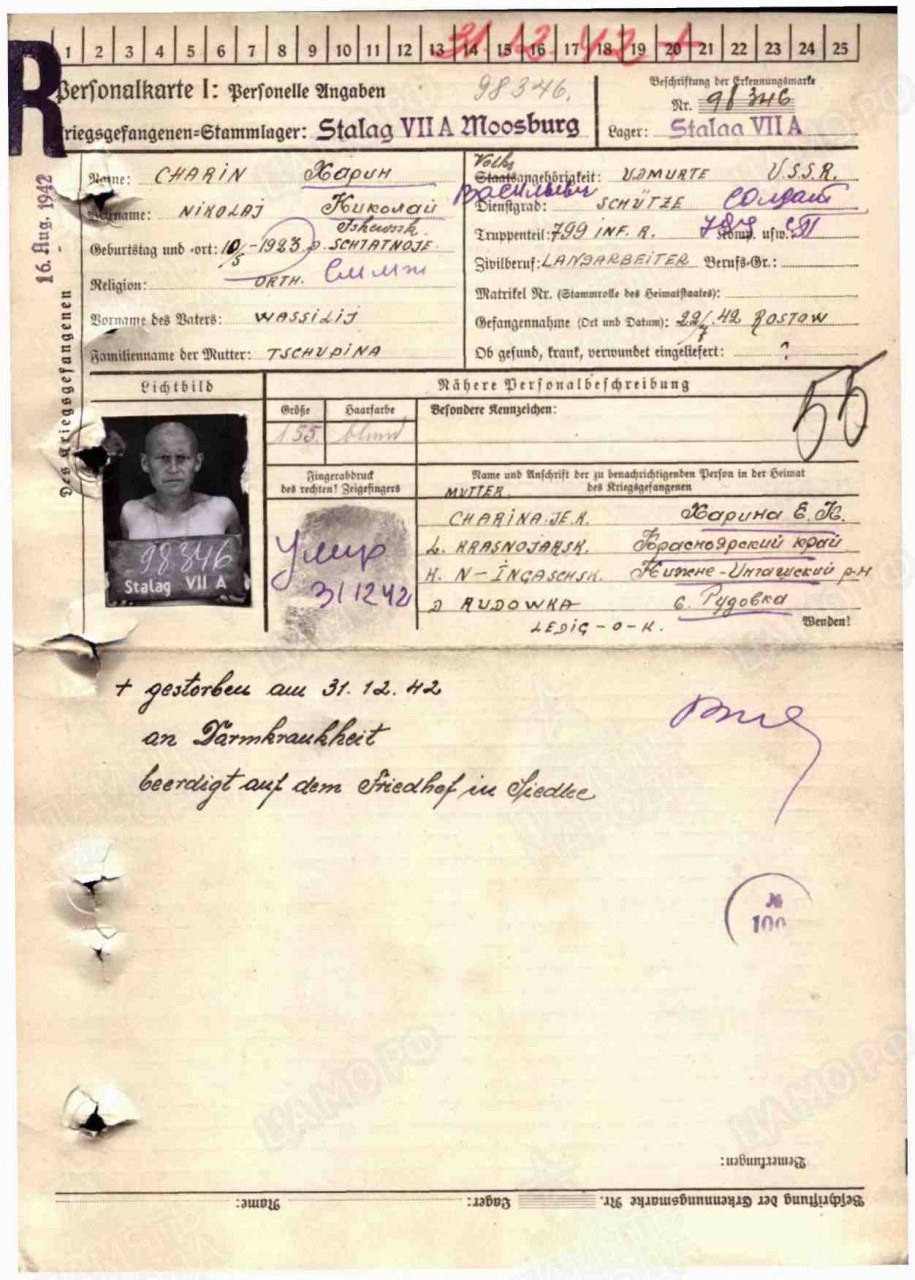 1 2 3 4 5 6 7 8 9 10 11 12 13 14 15 16 17 18 19 20 21 22 23 24 25
31.12.42 +
R
Personalkarte I: Personelle Angaben
98346.
Beschriftung der Erkennungsmarke
Nr. 98346
Kriegsgefangenen-Stammlager: Stalag VII A Moosburg
Lager: Stalag VII A
16. Aug. 1942
Des Kriegsgefangenen
Name: CHARIN Харин
Vorname: NIKOLAJ Николай Васильевич
Geburtstag und -ort: 10/5-1923
SCHTATNOJE.
Religion: ORTH.
Vorname des Vaters: WASSILIJ
Familienname der Mutter: TSCHUDINA
Volks
Staatsangehörigkeit: UDMURTE U.S.S.R.
Dienstgrad: SCHÜTZE Солдат
Truppenteil: 799 INF. R. Komp. usw. СП
Zivilberuf: LANDARBEITER Berufs-Gr.:
Matrikel Nr. (Stammrolle des Heimatstaates):
Gefangennahme (Ort und Datum): 22/7.42 ROSTOW
Ob gesund, krank, verwundet eingeliefert: ?
Lichtbild
Nähere Personalbeschreibung
55
Größe Haarfarbe Besondere Kennzeichen:
155 blond
98346
Stalag VII A
Fingerabdruck
des rechten! Zeigefingers
умер
31 12 42
Name und Anschrift der zu benachrichtigenden Person in der Heimat
des Kriegsgefangenen
MUTTER.
CHARINA.JE.K. Харина Е.К.
L. KRASNOJARSK. Красноярский край
K. N-INGASCHSK. Нижне-Ингашский р-н
D RUDOWKA с. Рудовка
LEDIG-O-K.
Wenden!
+ gestorben am 31.12.42
an Darmkrankheit
beerdigt auf dem Friedhof in Siedlce
№
100
Bemerkungen:
Beschriftung der Erkennungsmarke Nr. Lager: Name:
ЦАМО РФ